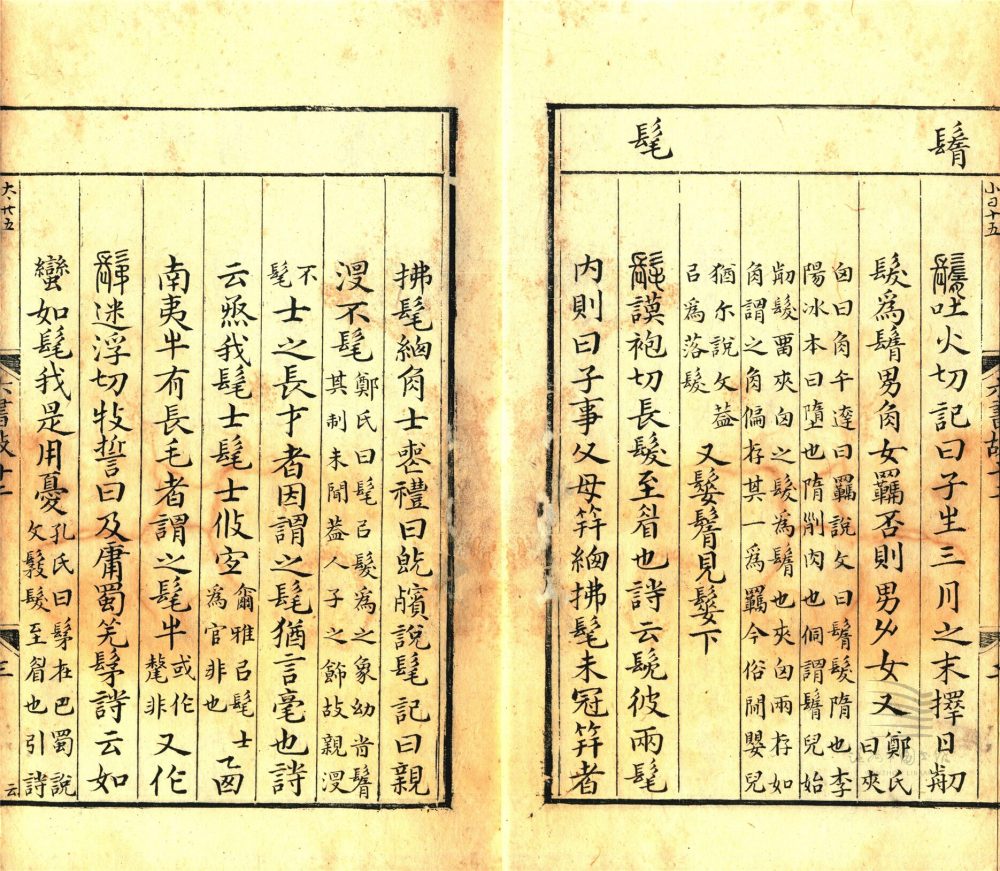 鬌
髦
小日十五
鬌吐火切記曰子生三月之末擇日翦
髮爲鬌男角女羈否則男ナ女又 鄭氏曰夾
囟曰角午達曰羈說文曰鬌髮隋也李
陽冰本曰墮也隋削肉也侗謂鬌兒始
翦髮畱夾囟之髮爲鬌也夾囟兩存如
角謂之角偏存其一爲羈今俗閒嬰兒
猶尓說文葢
㠯爲落髮
又鬌見下
髦謨袍切長髮至眉也詩云髧彼兩髦
內則曰子事父母筓緫拂髦未冠筓者
拂髦緫角士喪禮曰旣殯說髦記曰親
沒不髦 鄭氏曰髦㠯髮爲之象幼旹鬌
其制未聞葢人子之飾故親沒
不髦 士之長才者因謂之髦猶言毫也詩
云烝我髦士髦士攸宜 爾雅㠯髦士
爲官非也 西
南夷牛有長毛者謂之髦牛 或作氂非 又作
髳迷浮切牧誓曰及庸蜀羌髳詩云如
蠻如髦我是用憂 孔氏曰髳在巴蜀說
文髳髮至眉也引詩云
大卄五
六書故十二
三